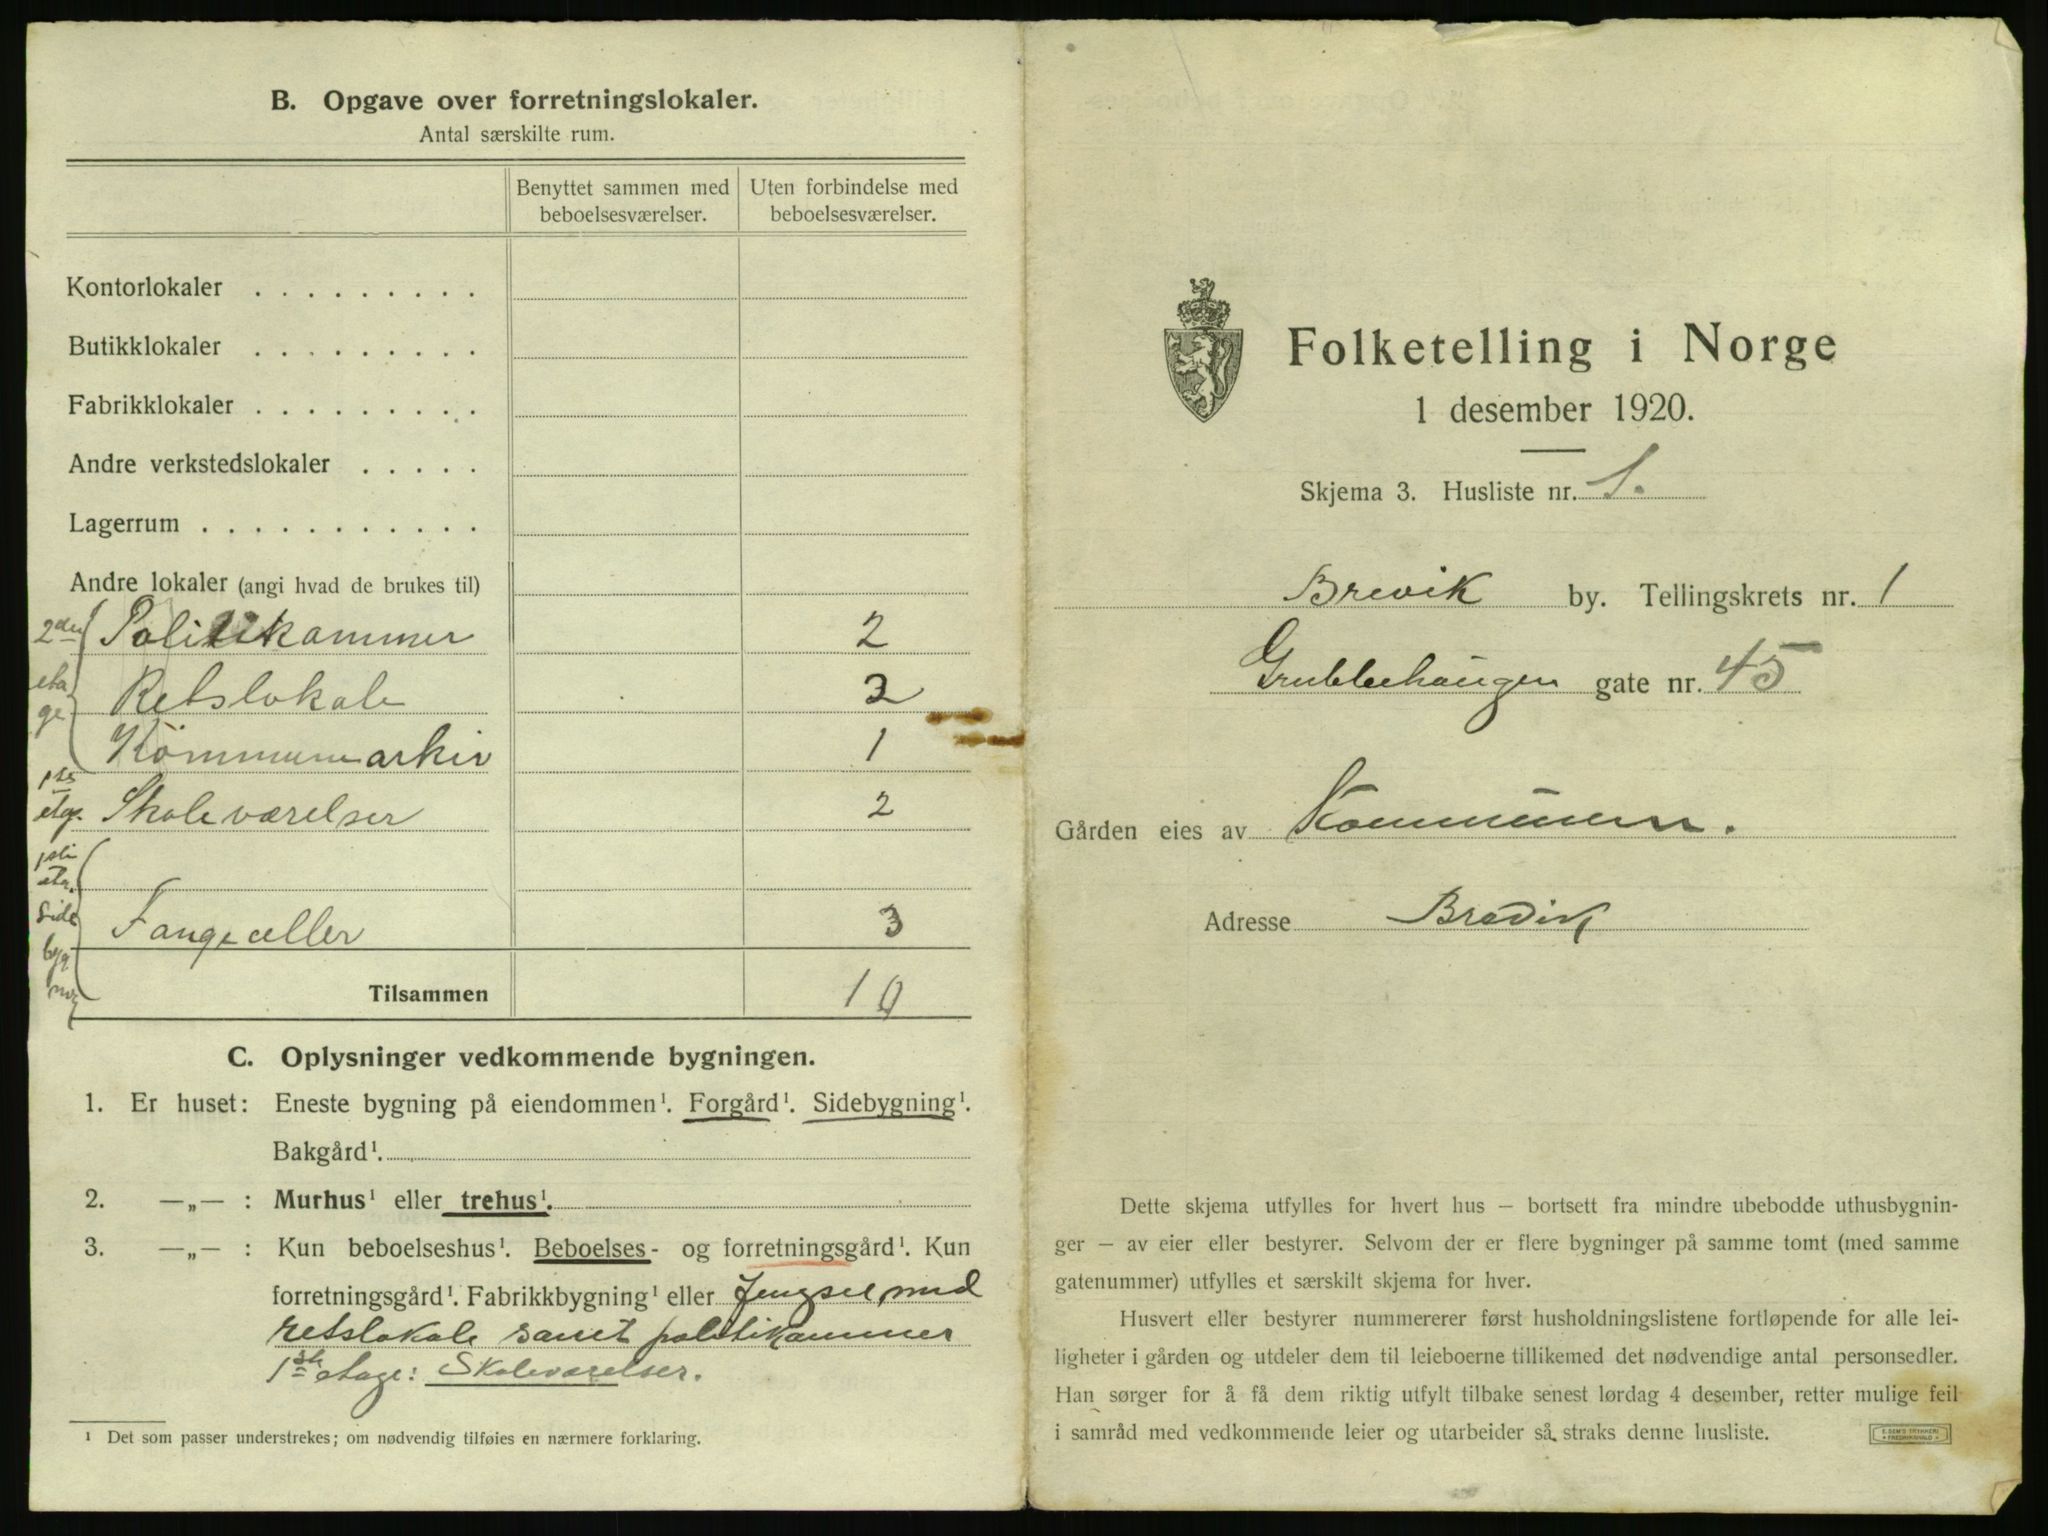 B. Opgave over forretningslokaler.
Antal særskilte rum.
Benyttet sammen med beboelsesværelser.
Uten forbindelse med beboelsesværelser.
Kontorlokaler . . . . . . . . .
Butikklokaler . . . . . . . . .
Fabrikklokaler . . . . . . . . .
Andre verkstedslokaler . . . . .
Lagerrum . . . . . . . . . . .
Andre lokaler (angi hvad de brukes til)
2den etage
Politikammer 2
Retslokale 2
Kommunearkiv 1
1ste etg. Skoleværelser 2
1ste eta. Side byg
Fangeceller 3
Tilsammen 10
C. Oplysninger vedkommende bygningen.
1. Er huset: Eneste bygning på eiendommen¹. Forgård¹. Sidebygning¹.
Bakgård¹.
2. —„— : Murhus¹ eller trehus¹.
3. —„— : Kun beboelseshus¹. Beboelses- og forretningsgård¹. Kun
forretningsgård¹. Fabrikkbygning¹ eller Fengsel med
retslokale samt politikammer
1ste etage: Skoleværelser.
¹ Det som passer understrekes; om nødvendig tilføies en nærmere forklaring.
Folketelling i Norge
1 desember 1920.
Skjema 3. Husliste nr. 1.
Brevik by. Tellingskrets nr. 1
Grubbehaugen gate nr. 45
Gården eies av Kommunen.
Adresse Brevik
Dette skjema utfylles for hvert hus — bortsett fra mindre ubebodde uthusbygnin-
ger — av eier eller bestyrer. Selvom der er flere bygninger på samme tomt (med samme
gatenummer) utfylles et særskilt skjema for hver.
Husvert eller bestyrer nummererer først husholdningslistene fortløpende for alle lei-
ligheter i gården og utdeler dem til leieboerne tillikemed det nødvendige antal personsedler.
Han sørger for å få dem riktig utfylt tilbake senest lørdag 4 desember, retter mulige feil
i samråd med vedkommende leier og utarbeider så straks denne husliste.
E. SEM'S TRYKKERI
FREDRIKSHALD